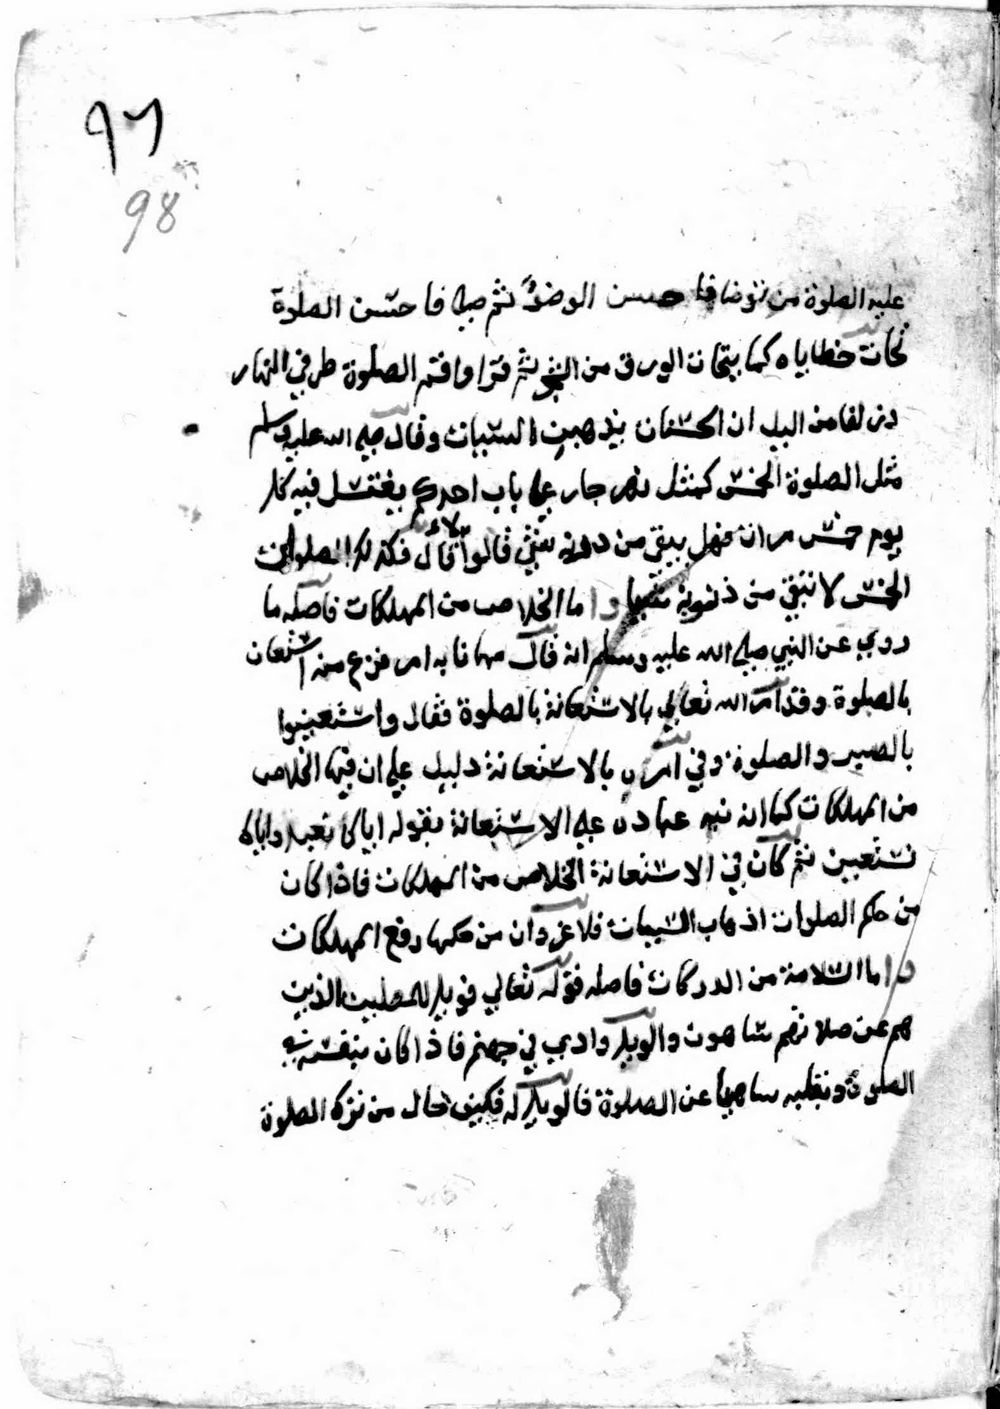 ٩٦
98
عليه الصلوة من توضا فاحسن الوضؤ ثم صلى فاحسن الصلوة
تحاتت خطاياه كما يتحات الورق من الشجر ثم قرا واقم الصلوة طرفي النهار
وزلفا من اليل ان الحسنات يذهبن السيات وقال صلى الله عليه وسلم
مثل الصلوة الخمس كمثل نهر جار على باب احدكم يغتسل فيه كل
يوم خمس مرات فهل يبقى من درنه شي قالوا لا قال فكذلك الصلوات
الخمس لا تبقى من ذنوبه شيا واما الخلاص من المهلكات فاصله ما
روي عن النبي صلى الله عليه وسلم انه قال مهما نابه امر فزع منه استعان
بالصلوة وقد امر الله تعالى بالاستعانة بالصلوة فقال واستعينوا
بالصبر والصلوة وفي امره بالاستعانة دليل على ان فيها الخلاص
من المهلكات كما انه نبه عباده على الاستعانة بقوله اياك نعبد واياك
نستعين ثم كان في الاستعانة الخلاص من المهلكات فاذا كان
من حكم الصلوات اذهاب السيات فلا غرو ان من حكمها دفع المهلكات
واما السلامة من الدركات فاصله قوله تعالى فويل للمصلين الذين
هم عن صلاتهم ساهون والويل وادي في جهنم فاذا كان بنفسه في
الصلوة وبقلبه ساهيا عن الصلوة فالويل له فكيف حال من ترك الصلوة